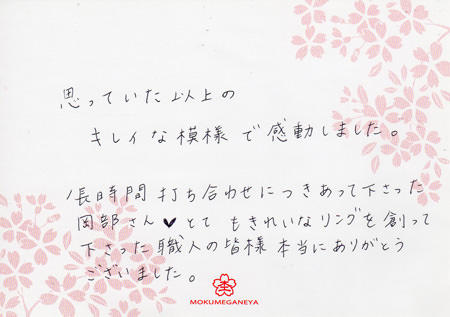 思っていた以上の
キレイな模様で感動しました。
長時間打ち合わせにつきあって下さった
岡部さん♥とてもきれいなリングを創って
下さった職人の皆様本当にありがとう
ございました。
MOKUMEGANEYA